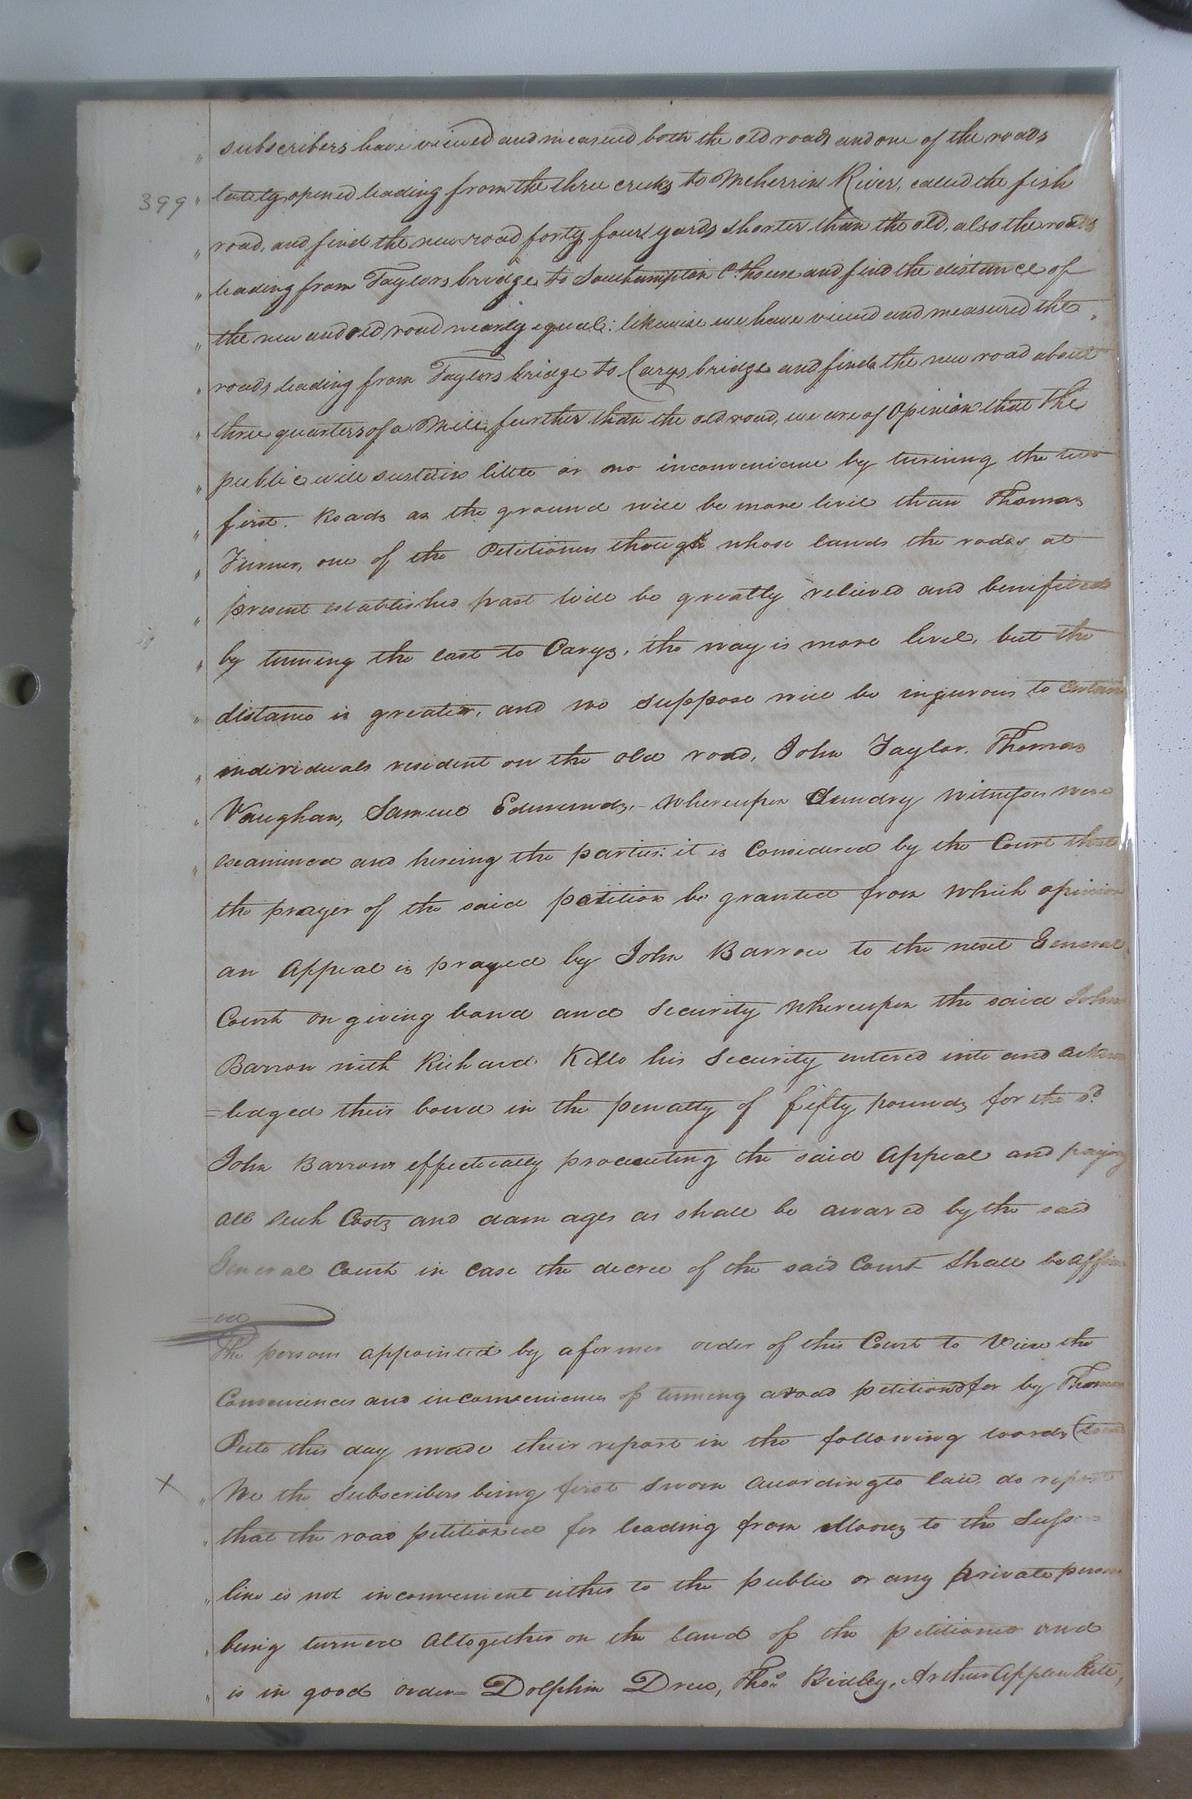 " subscribers have viewed and measured both the old roads and one of the roads
399 " lately opened leading from the three creeks to Meherrin River, called the fish
" road, and find the new road forty four yards shorter than the old, also the roads
" leading from Taylors bridge to Southampton C.house and find the distance of
" the new and old road nearly equal: likewise we have viewed and measured the
" roads leading from Taylors bridge to Carys bridge and find the new road about
" three quarters of a Mile further than the old road, we are of Opinion that the
" public will sustain little or no inconvenience by turning the two
" first. Roads as the ground will be more level than Thomas
" Turner, one of the Petitioners though whose lands the rodes at
" present established past will be greatly relieved and benefited
" by turning the last to Carys, the way is more level, but the
" distance is greater, and we suppose will be injurous to Certain
" individuals resident on the old road, John Taylor, Thomas
" Vaughan, Samuel Edmunds,- Whereupon Sundry Witnesses were
" examined and hereing the parties: it is Considered by the Court that
the prayer of the said petition be granted from which opinion
an Appeal is prayed by John Barrow to the next General
Court on giving bond and Security Whereupon the said John
Barrow with Richard Kello his Security entered into and Acknow
=ledged their bond in the penalty of fifty pounds for the sd
John Barrows effectually procecuting the said Appeal and paying
All such Costs and damages as shall be awared by the said
General Court in case the decree of the said Court Shall be affirm
=ed
The persons appointed by a former order of this Court to View the
Conveniences and inconveniences of turning a road petitiond for by Thomas
Pete this day made their report in the following words (towit
X " We the Subscribers being first Sworn According to law, do report
" that the road petitioned for leading from Mooreg to the Suss
" line is not inconvenient either to the public or any private person
" being turned Altogether on the land of the petitioner and
" is in good order= Dolphin Drew, Thos. Ridley, Arthur Applewhite,